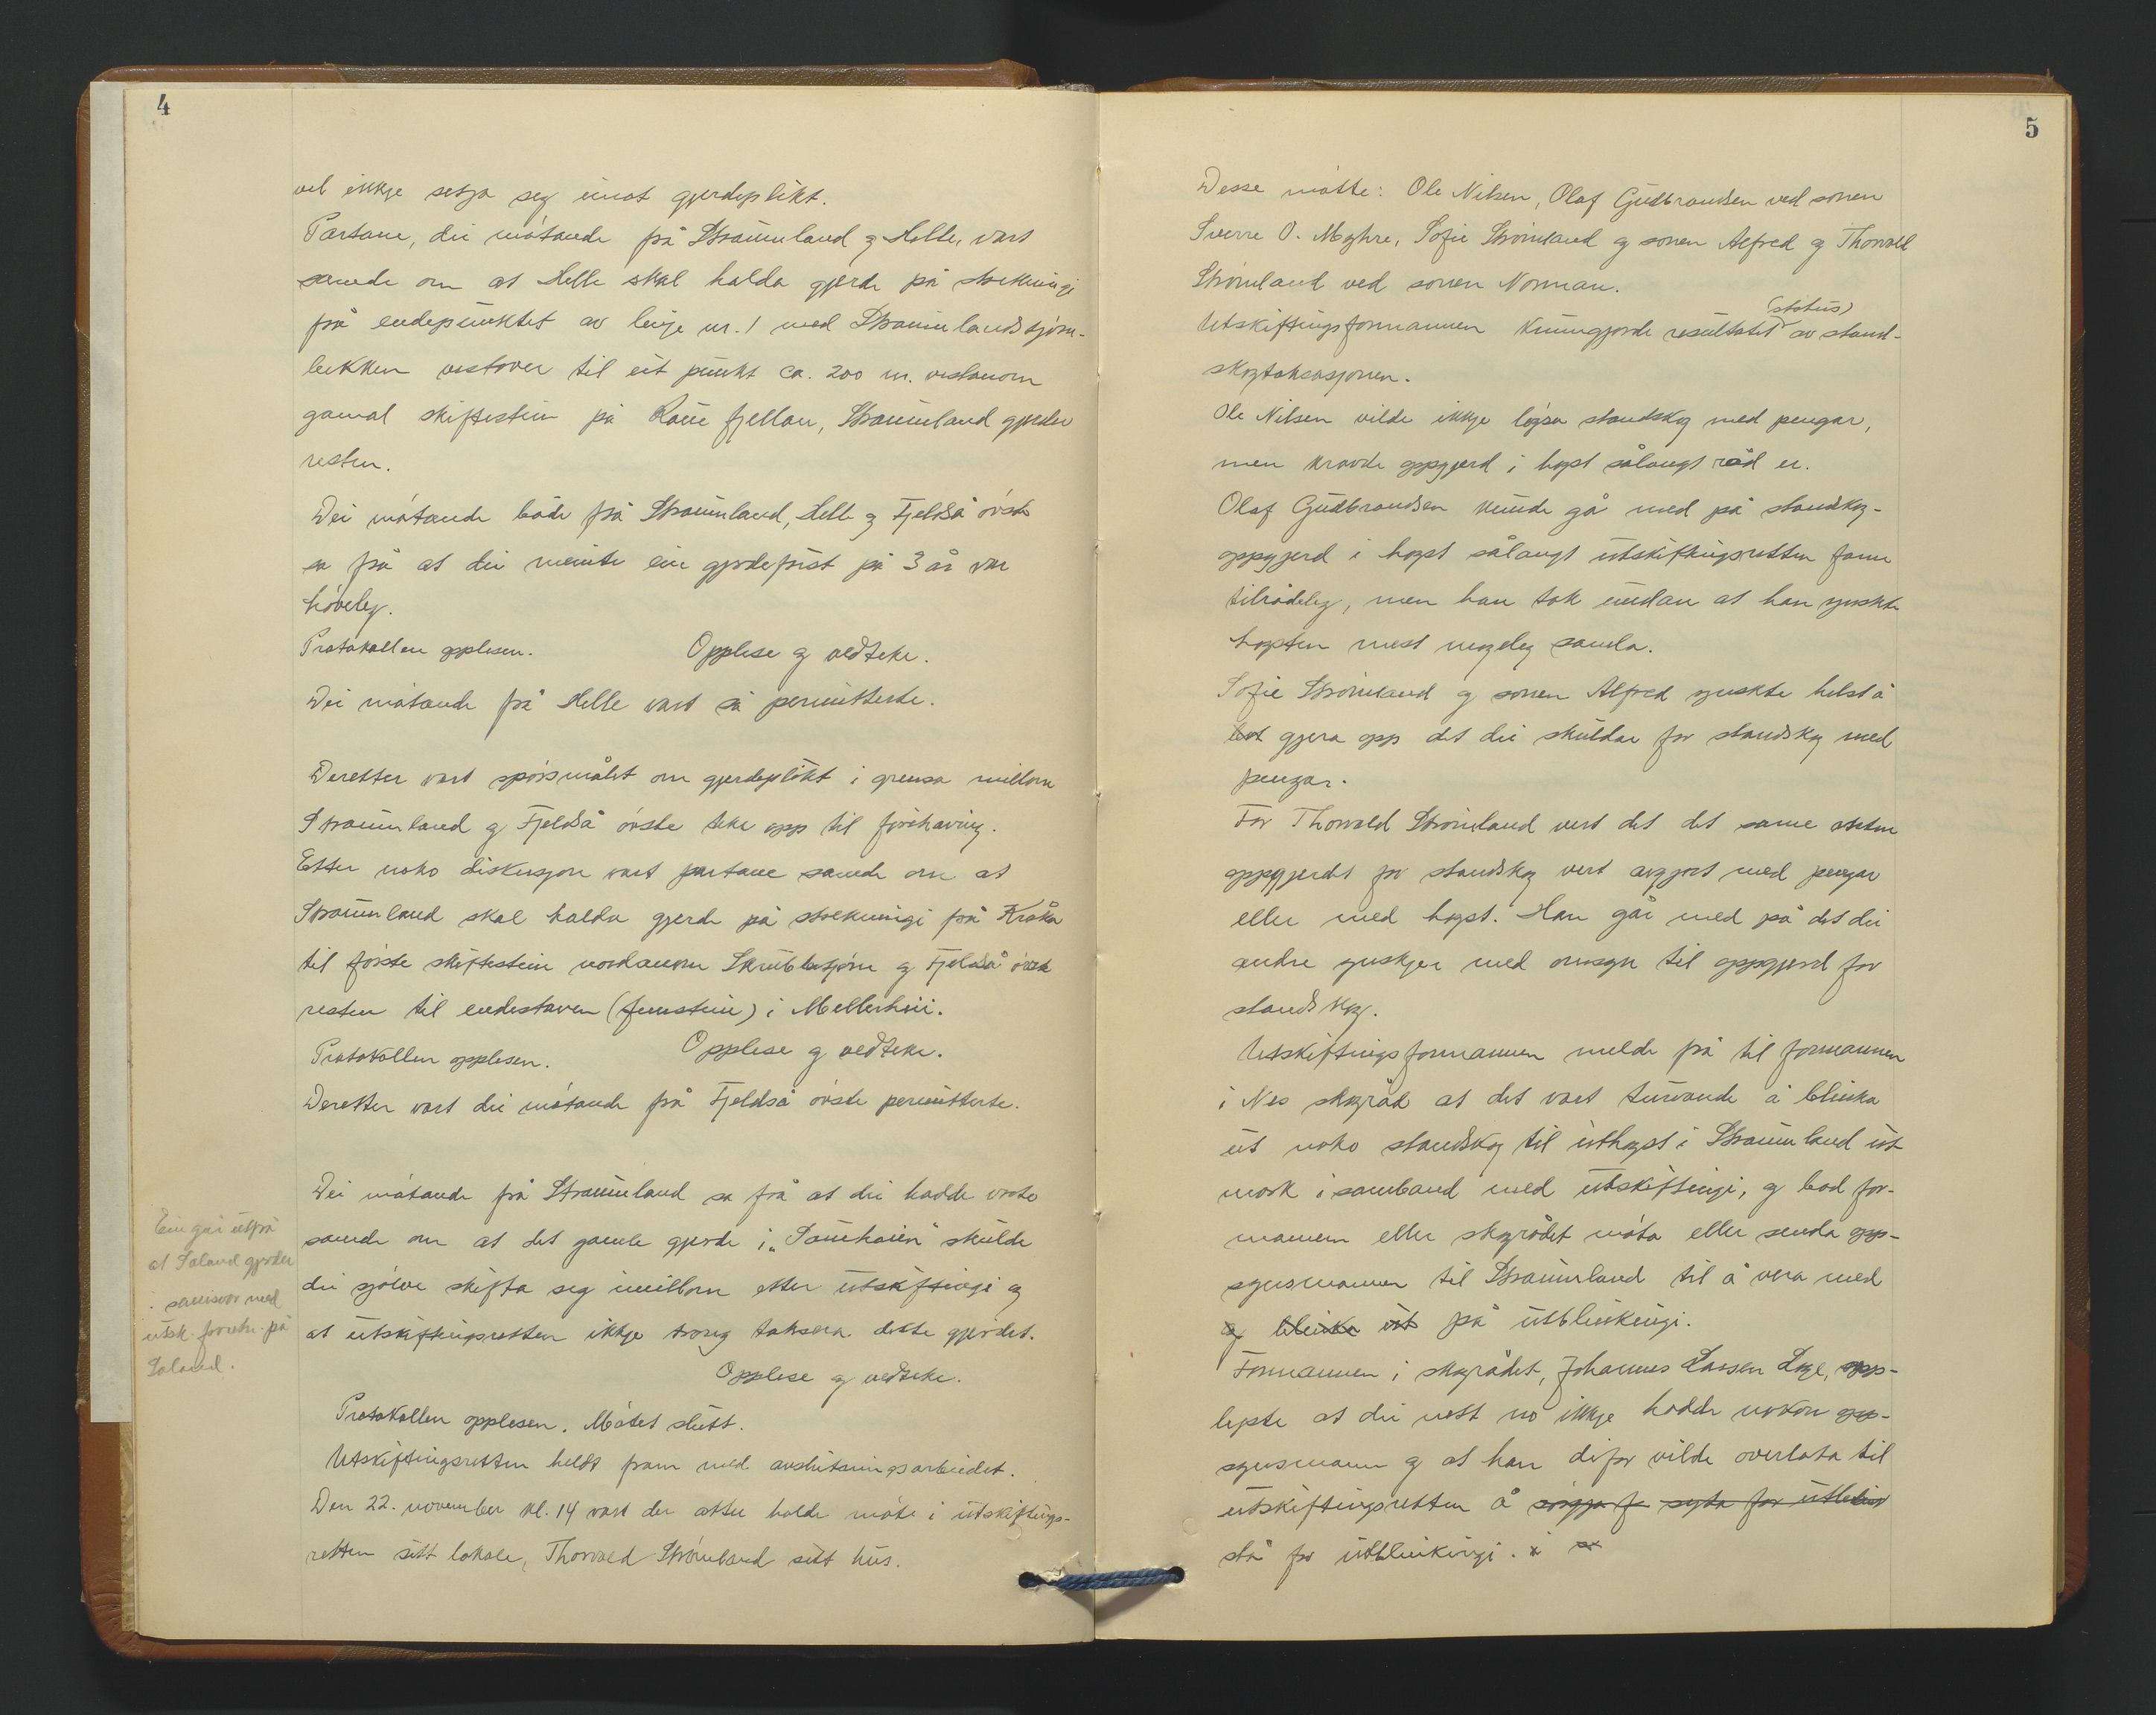 4
vil ikkje setja seg imot gjerdeplikt.
Partane, dei møtande frå Straumland og Helle, vart
samde om at Helle skal halda gjerde på strekningi
frå endepunktet av linje nr. 1 med Straumlandstjørn-
bekken vestover til eit punkt ca. 200 m. vestanom
gamal skiftestein på Raue fjellan, Straumland gjerder
resten.
Dei møtande både frå Straumland, Helle og Fjeldså øvste
sa frå at dei meinte ein gjerdefrist på 3 år var
høveleg.
Protokollen opplesen. Opplese og vedteke.
Dei møtande frå Helle vart så permitterte.
Deretter vart spørsmålet om gjerdeplikt i grensa millom
Straumland og Fjeldså øvste teke opp til fyrehaving.
Etter noko diskusjon vart partane samde om at
Straumland skal halda gjerde på strekningi frå Kråka
til første skiftestein nordanom Skrubbetjørn og Fjeldså øvste
resten til endestaven (funstein) i Mellerhei.
Protokollen opplesen. Opplese og vedteke.
Deretter vart dei møtande frå Fjeldså øvste permitterte.
Dei møtande frå Straumland sa frå at dei hadde vorte
samde om at det gamle gjerde i „Sauehaien" skulde
dei sjølve skifta seg imillom etter utskiftingi og
at utskiftingsretten ikkje trong taksera dette gjerdet.
Opplese og vedteke.
Protokollen opplesen. Møtet slutt.
Utskiftingsretten heldt fram med avslutningsarbeidet.
Den 22. november kl. 14 vart der atter halde møte i utskiftings-
retten sitt lokale, Thorvald Strømland sitt hus.
Ein går utfrå
at Saland gjerder
i samsvar med
utsk. forretn. på
Saland.
5
Desse møtte: Ole Nilsen, Olaf Gudbrandsen ved sonen
Sverre O. Myhre, Sofie Strømland og sonen Alfred og Thorvald
Strømland ved sonen Norman.
(status)
Utskiftingsformannen kunngjorde resultatet av stand-
skogtaksasjonen.
Ole Nilsen vilde ikkje løysa standskog med pengar,
men kravde oppgjerd i hogst sålangt råd er.
Olaf Gudbrandsen kunde gå med på standskog-
oppgjerd i hogst sålangt utskiftingsretten fann
tilrådeleg, men han tok undan at han ynskte
hogsten mest mogeleg samla.
Sofie Strømland og sonen Alfred ynskte helst å
gjera opp det dei skuldar for standskog med
pengar.
For Thorvald Strømland vert det det same anten
oppgjerdet for standskog vert avgjort med pengar
eller med hogst. Han går med på det dei
andre ynskjer med omsyn til oppgjerd for
standskog.
Utskiftingsformannen melde frå til formannen
i Nes skogråd at det vart turvande å blinka
ut noko standskog til uthogst i Straumland ut-
mork i samband med utskiftingi, og bad for-
mannen eller skogrådet møta eller senda opp-
synsmannen til Straumland til å vera med
og blinka ut på utblinkingi.
Formannen i skogrådet, Johannes Larsen Loge, opp-
lyste at dei nett no ikkje hadde nokon opp-
synsmann og at han difor vilde overlata til
utskiftingsretten å syrgja f syta for utblink
stå for utblinkingi.